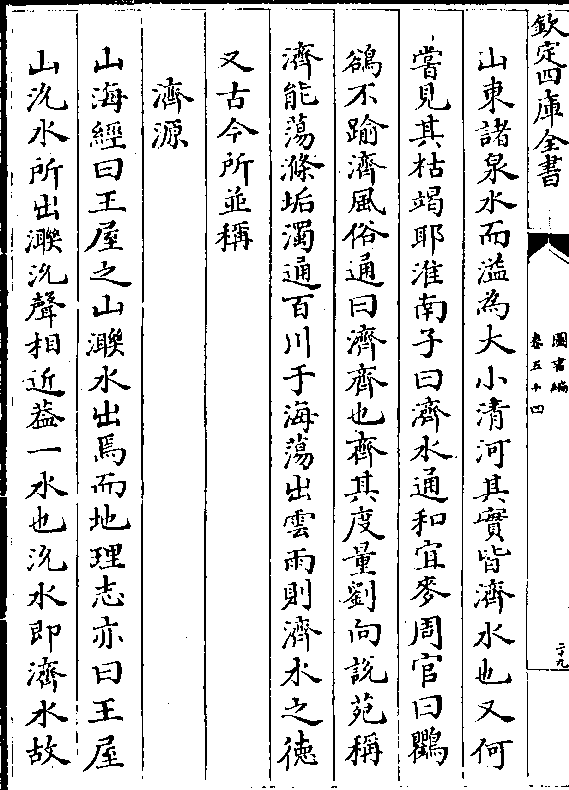 欽定四庫全書
圖書編
卷五十四
二十九
山東諸泉水而溢為大小清河其實皆濟水也又何
嘗見其枯竭耶淮南子曰濟水通和宜麥周官曰鸜
鵒不踰濟風俗通曰濟齊也齊其度量劉向說苑稱
濟能蕩滌垢濁通百川于海蕩出雲雨則濟水之徳
又古今所並稱
濟源
山海經曰王屋之山㶌水出焉而地理志亦曰王屋
山沇水所出㶌沇聲相近葢一水也沇水即濟水故